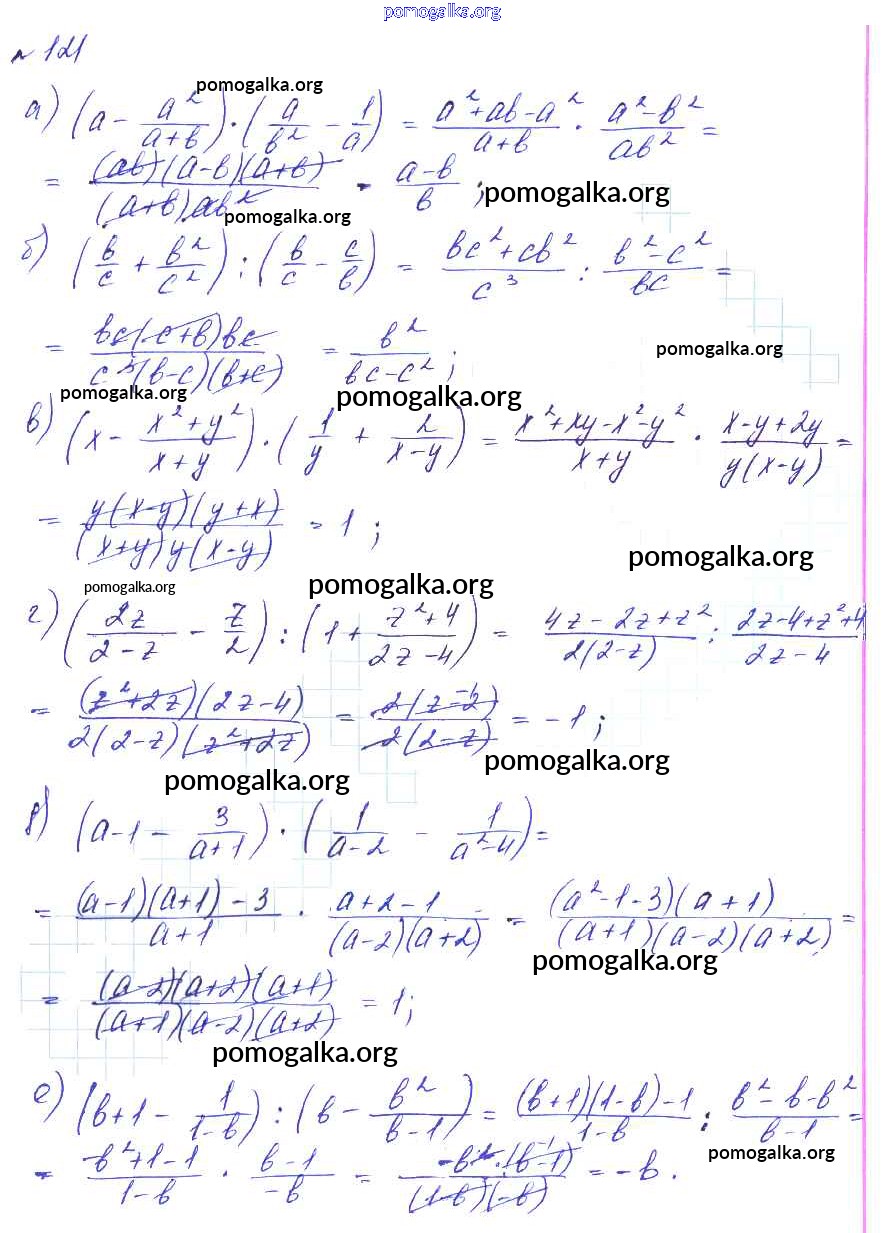 pomogalka.org
№ 121
pomogalka.org
а) (a - a²/(a+b)) · (a/b² - 1/a) = (a²+ab-a²)/(a+b) · (a²-b²)/(ab²) =
= ((ab)(a-b)(a+b))/((a+b)ab²) = (a-b)/b ; pomogalka.org
pomogalka.org
б) (b/c + b²/c²) : (b/c - c/b) = (bc²+cb²)/c³ : (b²-c²)/(bc) =
= (bc(c+b)bc)/(c³(b-c)(b+c)) = b²/(bc-c²) ; pomogalka.org
pomogalka.org pomogalka.org
в) (x - (x²+y²)/(x+y)) · (1/y + 2/(x-y)) = (x²+xy-x²-y²)/(x+y) · (x-y+2y)/(y(x-y)) =
= (y(x-y)(y+x))/((x+y)y(x-y)) = 1 ;
pomogalka.org
pomogalka.org pomogalka.org
г) (2z/(2-z) - z/2) : (1 + (z²+4)/(2z-4)) = (4z-2z+z²)/(2(2-z)) : (2z-4+z²+4)/(2z-4)
= ((z²+2z)(2z-4))/(2(2-z)(z²+2z)) = (2(z-2)⁻¹)/(2(2-z)) = -1 ;
pomogalka.org
pomogalka.org
д) (a-1 - 3/(a+1)) · (1/(a-2) - 1/(a²-4)) =
= ((a-1)(a+1)-3)/(a+1) · (a+2-1)/((a-2)(a+2)) = ((a²-1-3)(a+1))/((a+1)(a-2)(a+2)) =
pomogalka.org
= ((a-2)(a+2)(a+1))/((a+1)(a-2)(a+2)) = 1 ;
pomogalka.org
е) (b+1 - 1/(1-b)) : (b - b²/(b-1)) = ((b+1)(1-b)-1)/(1-b) : (b²-b-b²)/(b-1) =
= (-b²+1-1)/(1-b) · (b-1)/(-b) = (-b² · (b-1)⁻¹)/((1-b)(-b)) = -b .
pomogalka.org